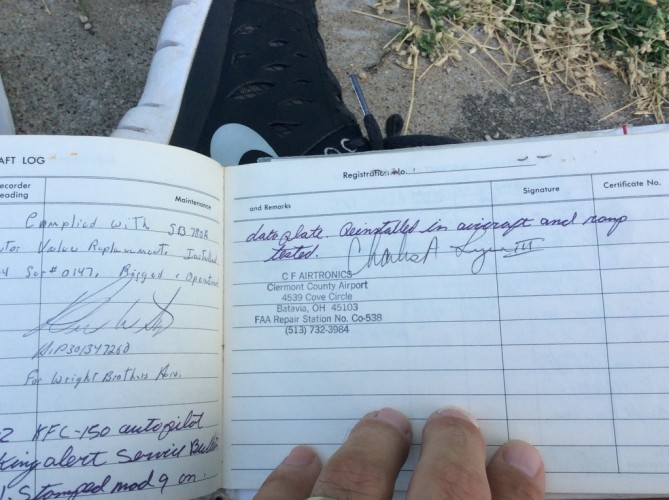 AFT LOG
ecorder
eading
Maintenance
Complied with SB 780A
Valve Replacement. Installed
Ser# 0147, Rigged & Operation
A&P301347260
For Wright Brothers Aero.
KFC-150 autopilot
King alert Service Bulle
Stamped mod 9 on
Registration No.
and Remarks
Signature
Certificate No.
data plate. Reinstalled in aircraft and ramp
tested.
Charles A
III
C F AIRTRONICS
Clermont County Airport
4539 Cove Circle
Batavia, OH 45103
FAA Repair Station No. Co-538
(513) 732-3984